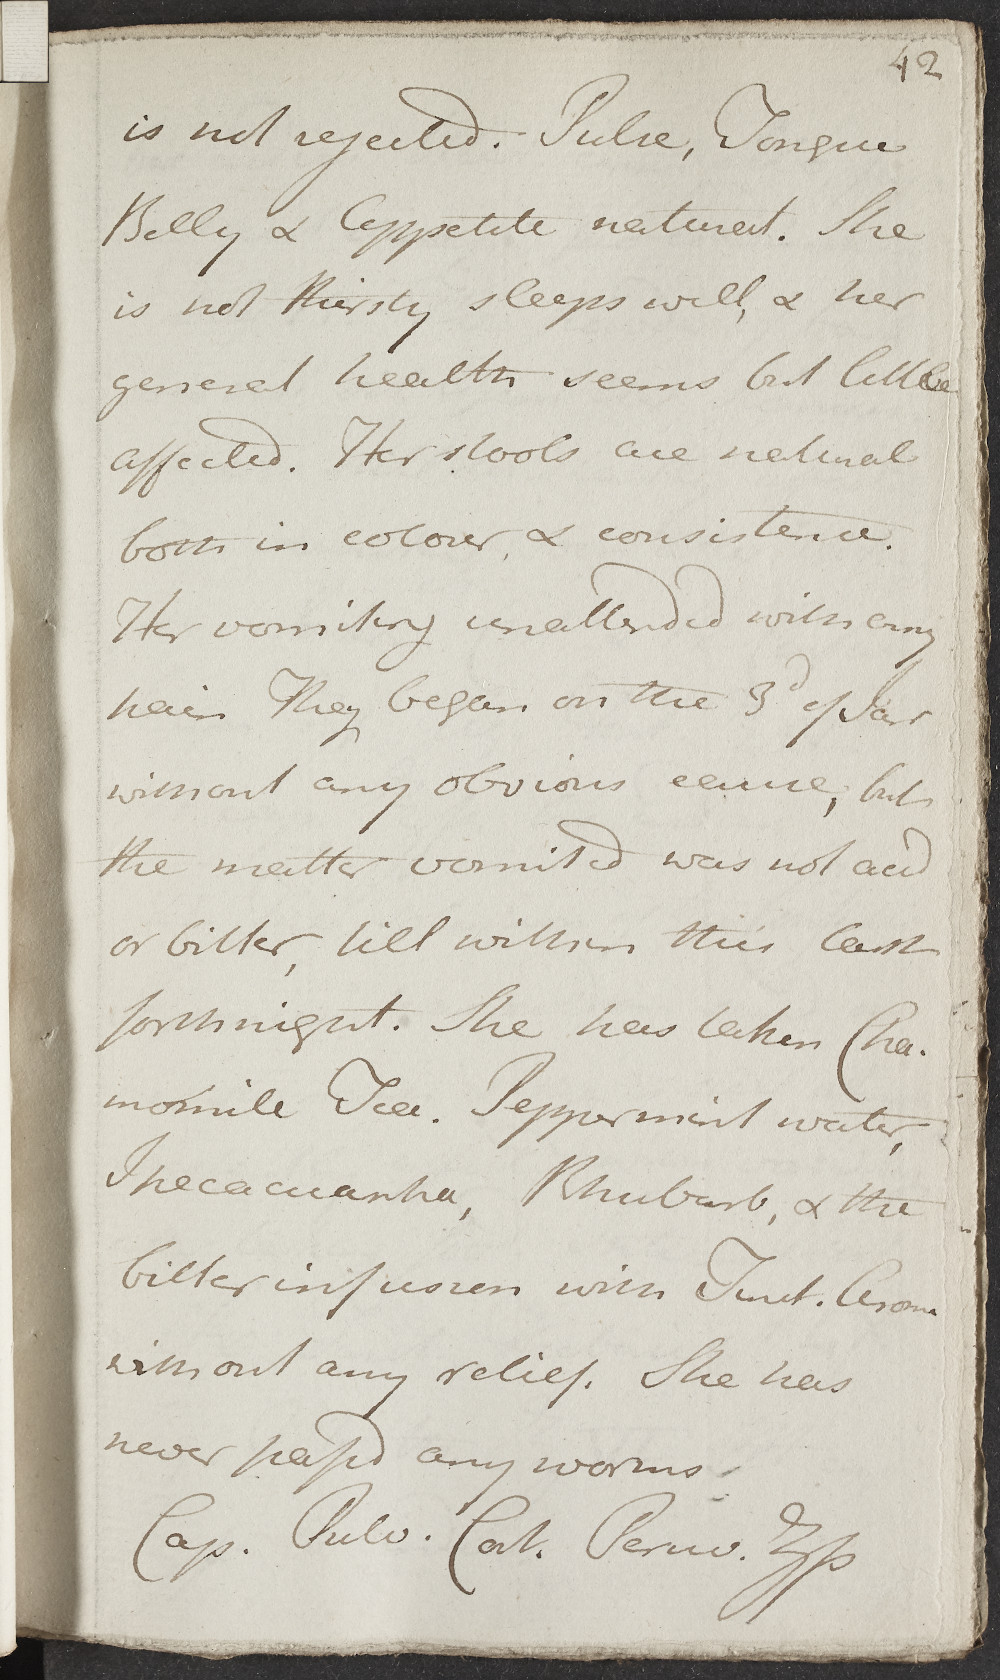 42
is not rejected. Pulse, Tongue
Belly & Appetite natural. She
is not thirsty sleeps well, & her
general health seems but little
affected. Her stools are natural
both in colour, & consistence.
Her vomiting unattended with any
pain They began on the 3d of Jan
without any obvious cause, but
the matter vomited was not acid
or bitter, till within this last
forthnight. She has taken Cha.
momile Tea. Peppermint water,
Ipecacuanha, Rhubarb, & the
bitter infusion with Tinct. Arom
without any relief. She has
never pass'd any worms.
Cap. Pulv. Cort. Peruv. ʒſs